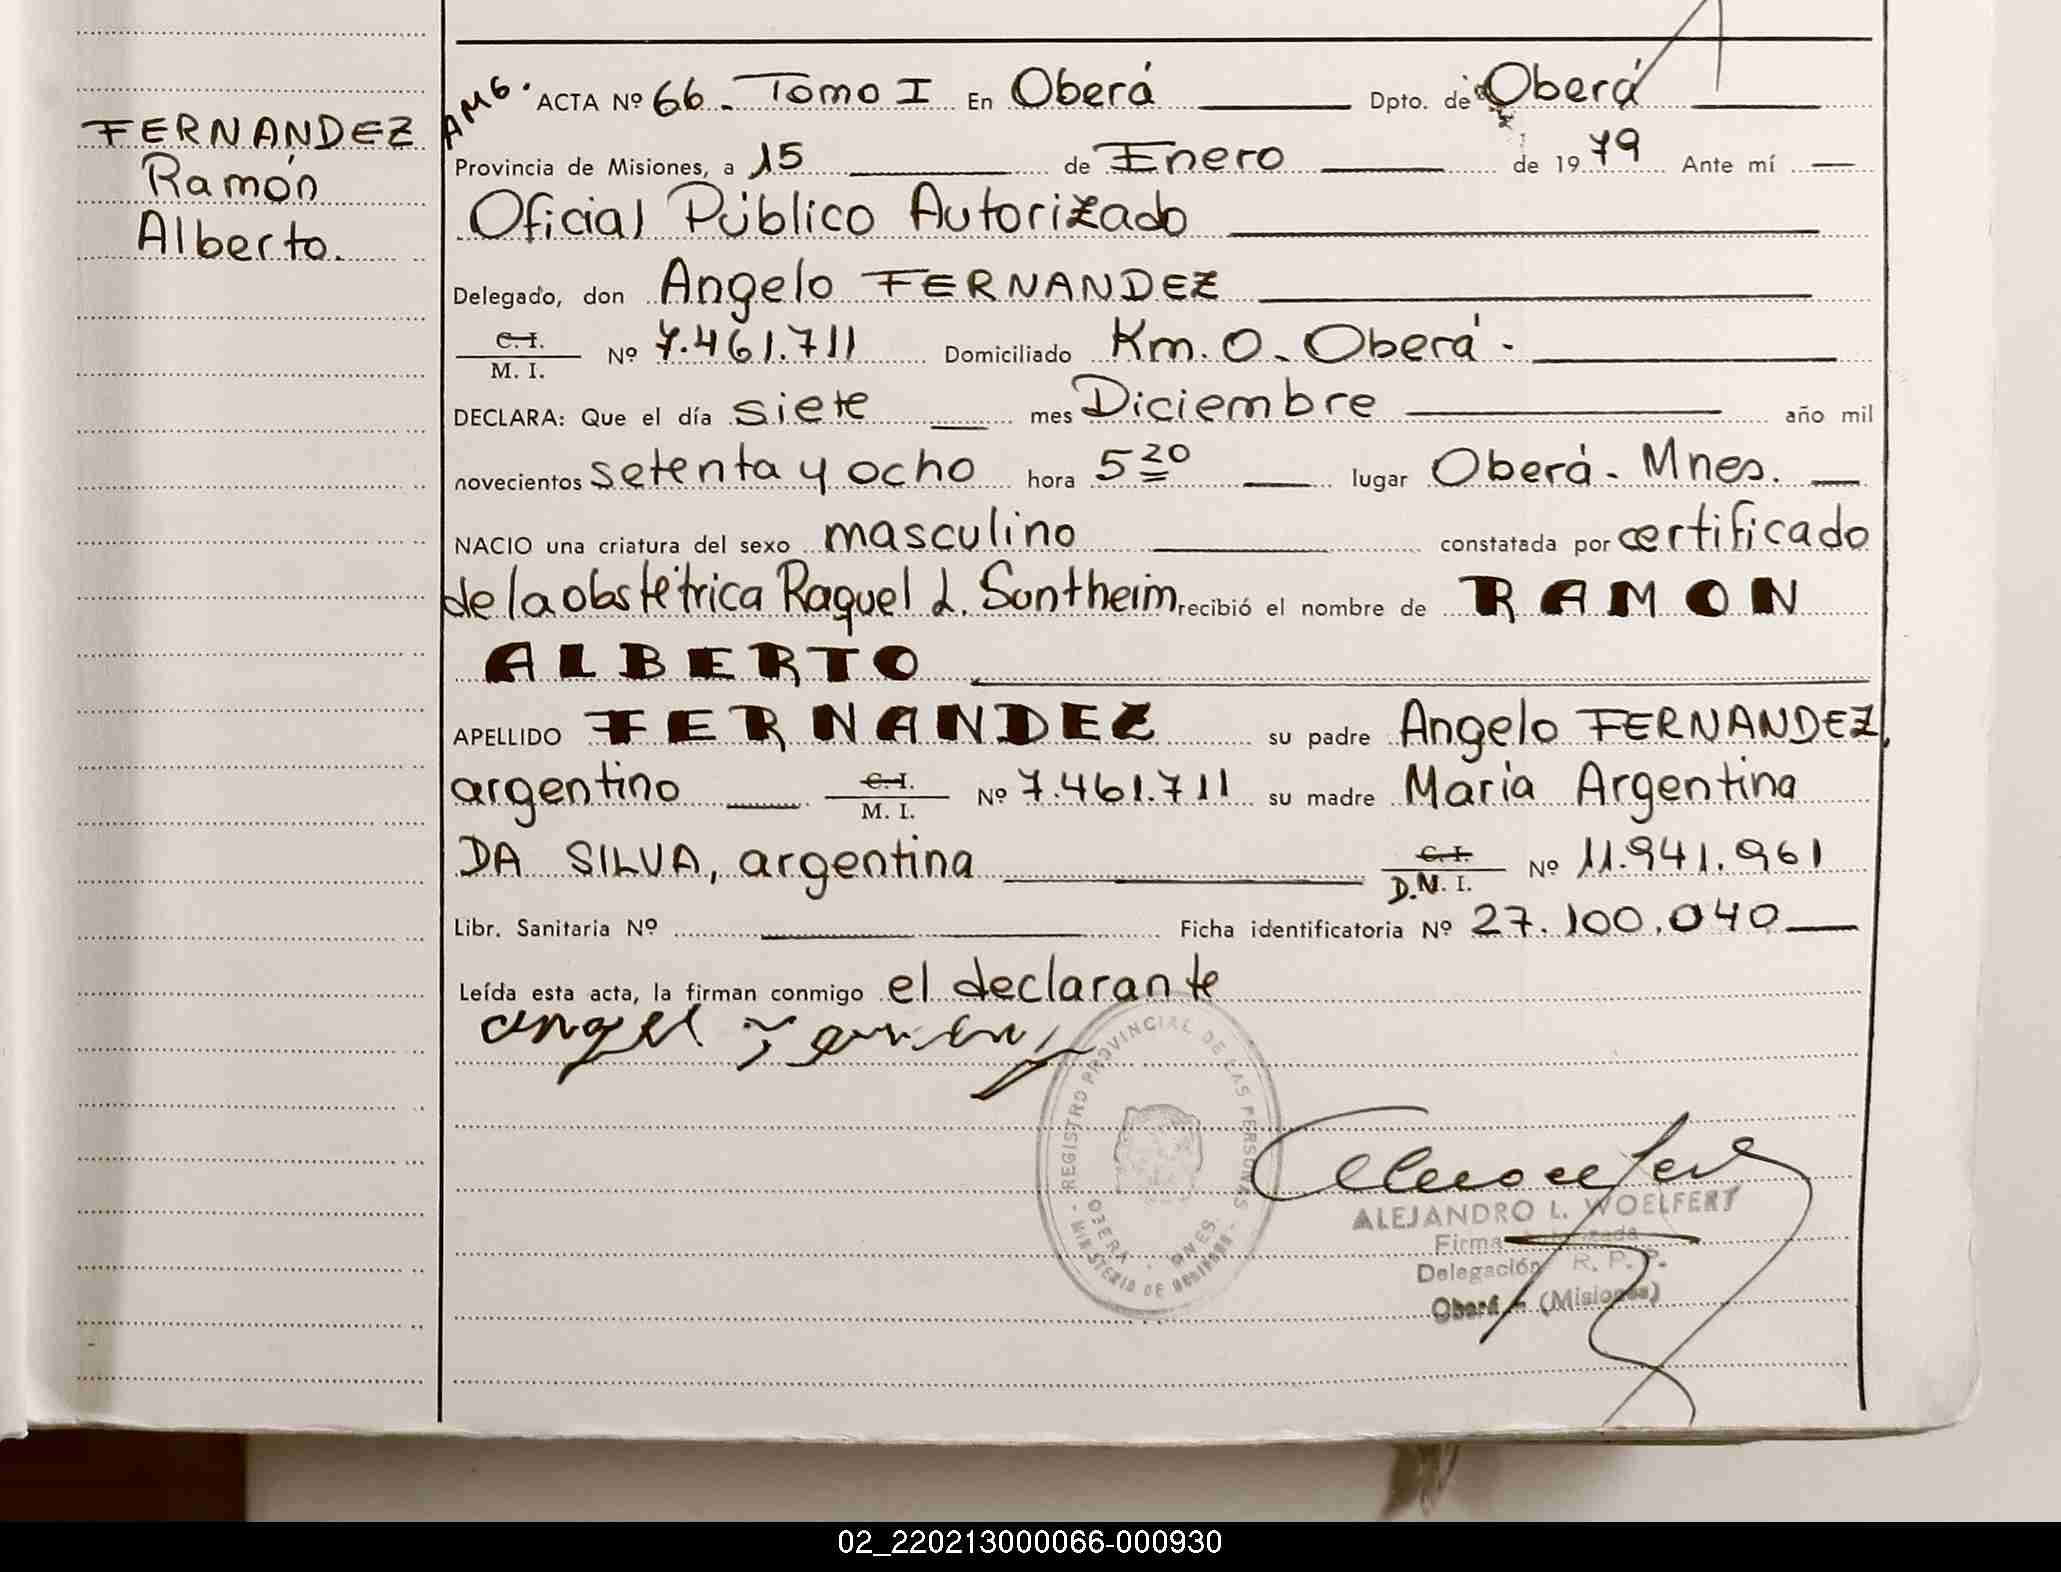 FERNANDEZ
Ramón
Alberto.
AMG.
ACTA Nº 66 - Tomo I En Oberá Dpto. de Oberá
Provincia de Misiones, a 15 de Enero de 1979 Ante mí
Oficial Público Autorizado
Delegado, don Angelo FERNANDEZ
C.I.
M. I. Nº 7.461.711 Domiciliado Km. 0 - Oberá -
DECLARA: Que el día siete mes Diciembre año mil
novecientos setenta y ocho hora 5 20 lugar Oberá - Mnes.
NACIO una criatura del sexo masculino constatada por certificado
de la obstétrica Raquel L. Sontheim recibió el nombre de RAMON
ALBERTO
APELLIDO FERNANDEZ su padre Angelo FERNANDEZ,
argentino C.I. M. I. Nº 7.461.711 su madre María Argentina
DA SILVA, argentina C.I. D.M. I. Nº 11.941.961
Libr. Sanitaria Nº Ficha identificatoria Nº 27.100.040
Leída esta acta, la firman conmigo el declarante
angel
REGISTRO PROVINCIAL DE LAS PERSONAS
MINISTERIO DE GOBIERNO
OBERA - MNES.
ALEJANDRO L. WOELFERT
Firma Autorizada
Delegación R. P. P.
Oberá - (Misiones)
02_220213000066-000930